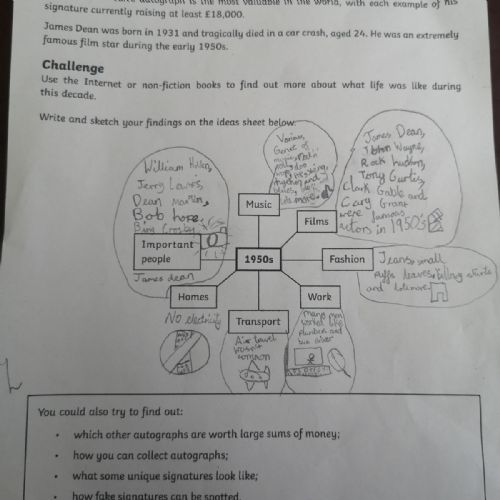 autograph is the most valuable in the world, with each example of his
signature currently raising at least £18,000.
James Dean was born in 1931 and tragically died in a car crash, aged 24. He was an extremely
famous film star during the early 1950s.
Challenge
Use the Internet or non-fiction books to find out more about what life was like during
this decade.
Write and sketch your findings on the ideas sheet below.
William Holden,
Jerry Lewis,
Dean martin,
Bob hope,
Bing Crosby
James dean
Important
people
Various
Genres of
music
rhythm and
blues,
lots more.
Music
James Dean,
John Wayne,
Rock hudson,
Tony Curtis,
Clark Gable and
Cary Grant
were famous
actors in 1950s
Films
1950s
Fashion
Jeans, small
and lots more
Homes
NO electricity
Transport
Air travel
wasn't
common
Work
Many men
worked like
plumbers and
bus driver
You could also try to find out:
• which other autographs are worth large sums of money;
• how you can collect autographs;
• what some unique signatures look like;
• how fake signatures can be spotted.